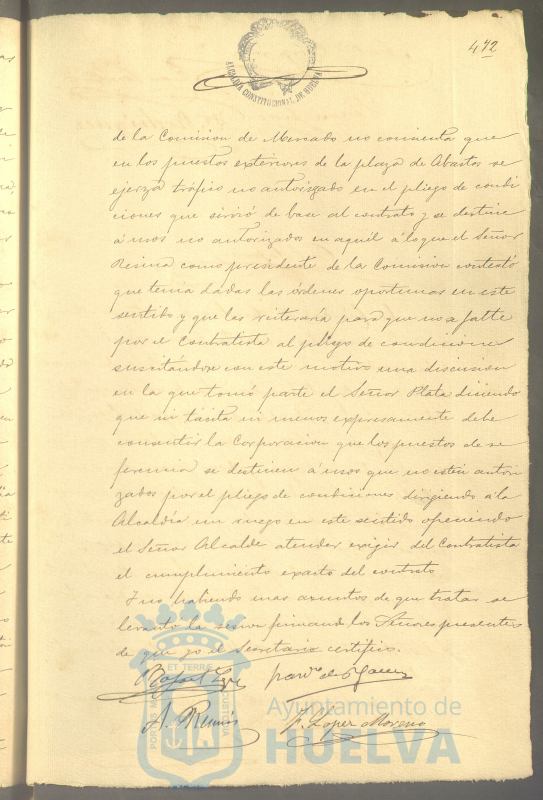 472
ALCALDIA CONSTITUCIONAL DE HUELVA
de la Comision de Mercado no consienta que
en los puestos exteriores de la plaza de Abastos se
ejerza tráfico no autorizado en el pliego de condi
ciones que sirvió de base al contrato y se destine
á usos no autorizados en aquél á lo que el Señor
como presidente de la Comision contestó
que tenia dadas las órdenes oportunas en este
sentido y que las reiteraría para que no se falte
por el Contratista al pliego de condiciones
suscitándose con este motivo una discusion
en la que tomó parte el Señor Plata diciendo
que ni tácita ni menos expresamente debe
consentir la Corporacion que los puestos de re
ferencia se destinen á usos que no estén autori
zados por el pliego de condiciones dirigiendo á la
Alcaldía un ruego en este sentido ofreciendo
el Señor Alcalde atender exigir del Contratista
el cumplimiento exacto del contrato
Y no habiendo mas asuntos de que tratar se
levantó la sesion firmando los Señores presentes
de que yo el Secretario certifico.
Rafael
A.
F. López Moreno
PORTUS MARIS ET TERRAE CUSTODIA
Ayuntamiento de
HUELVA